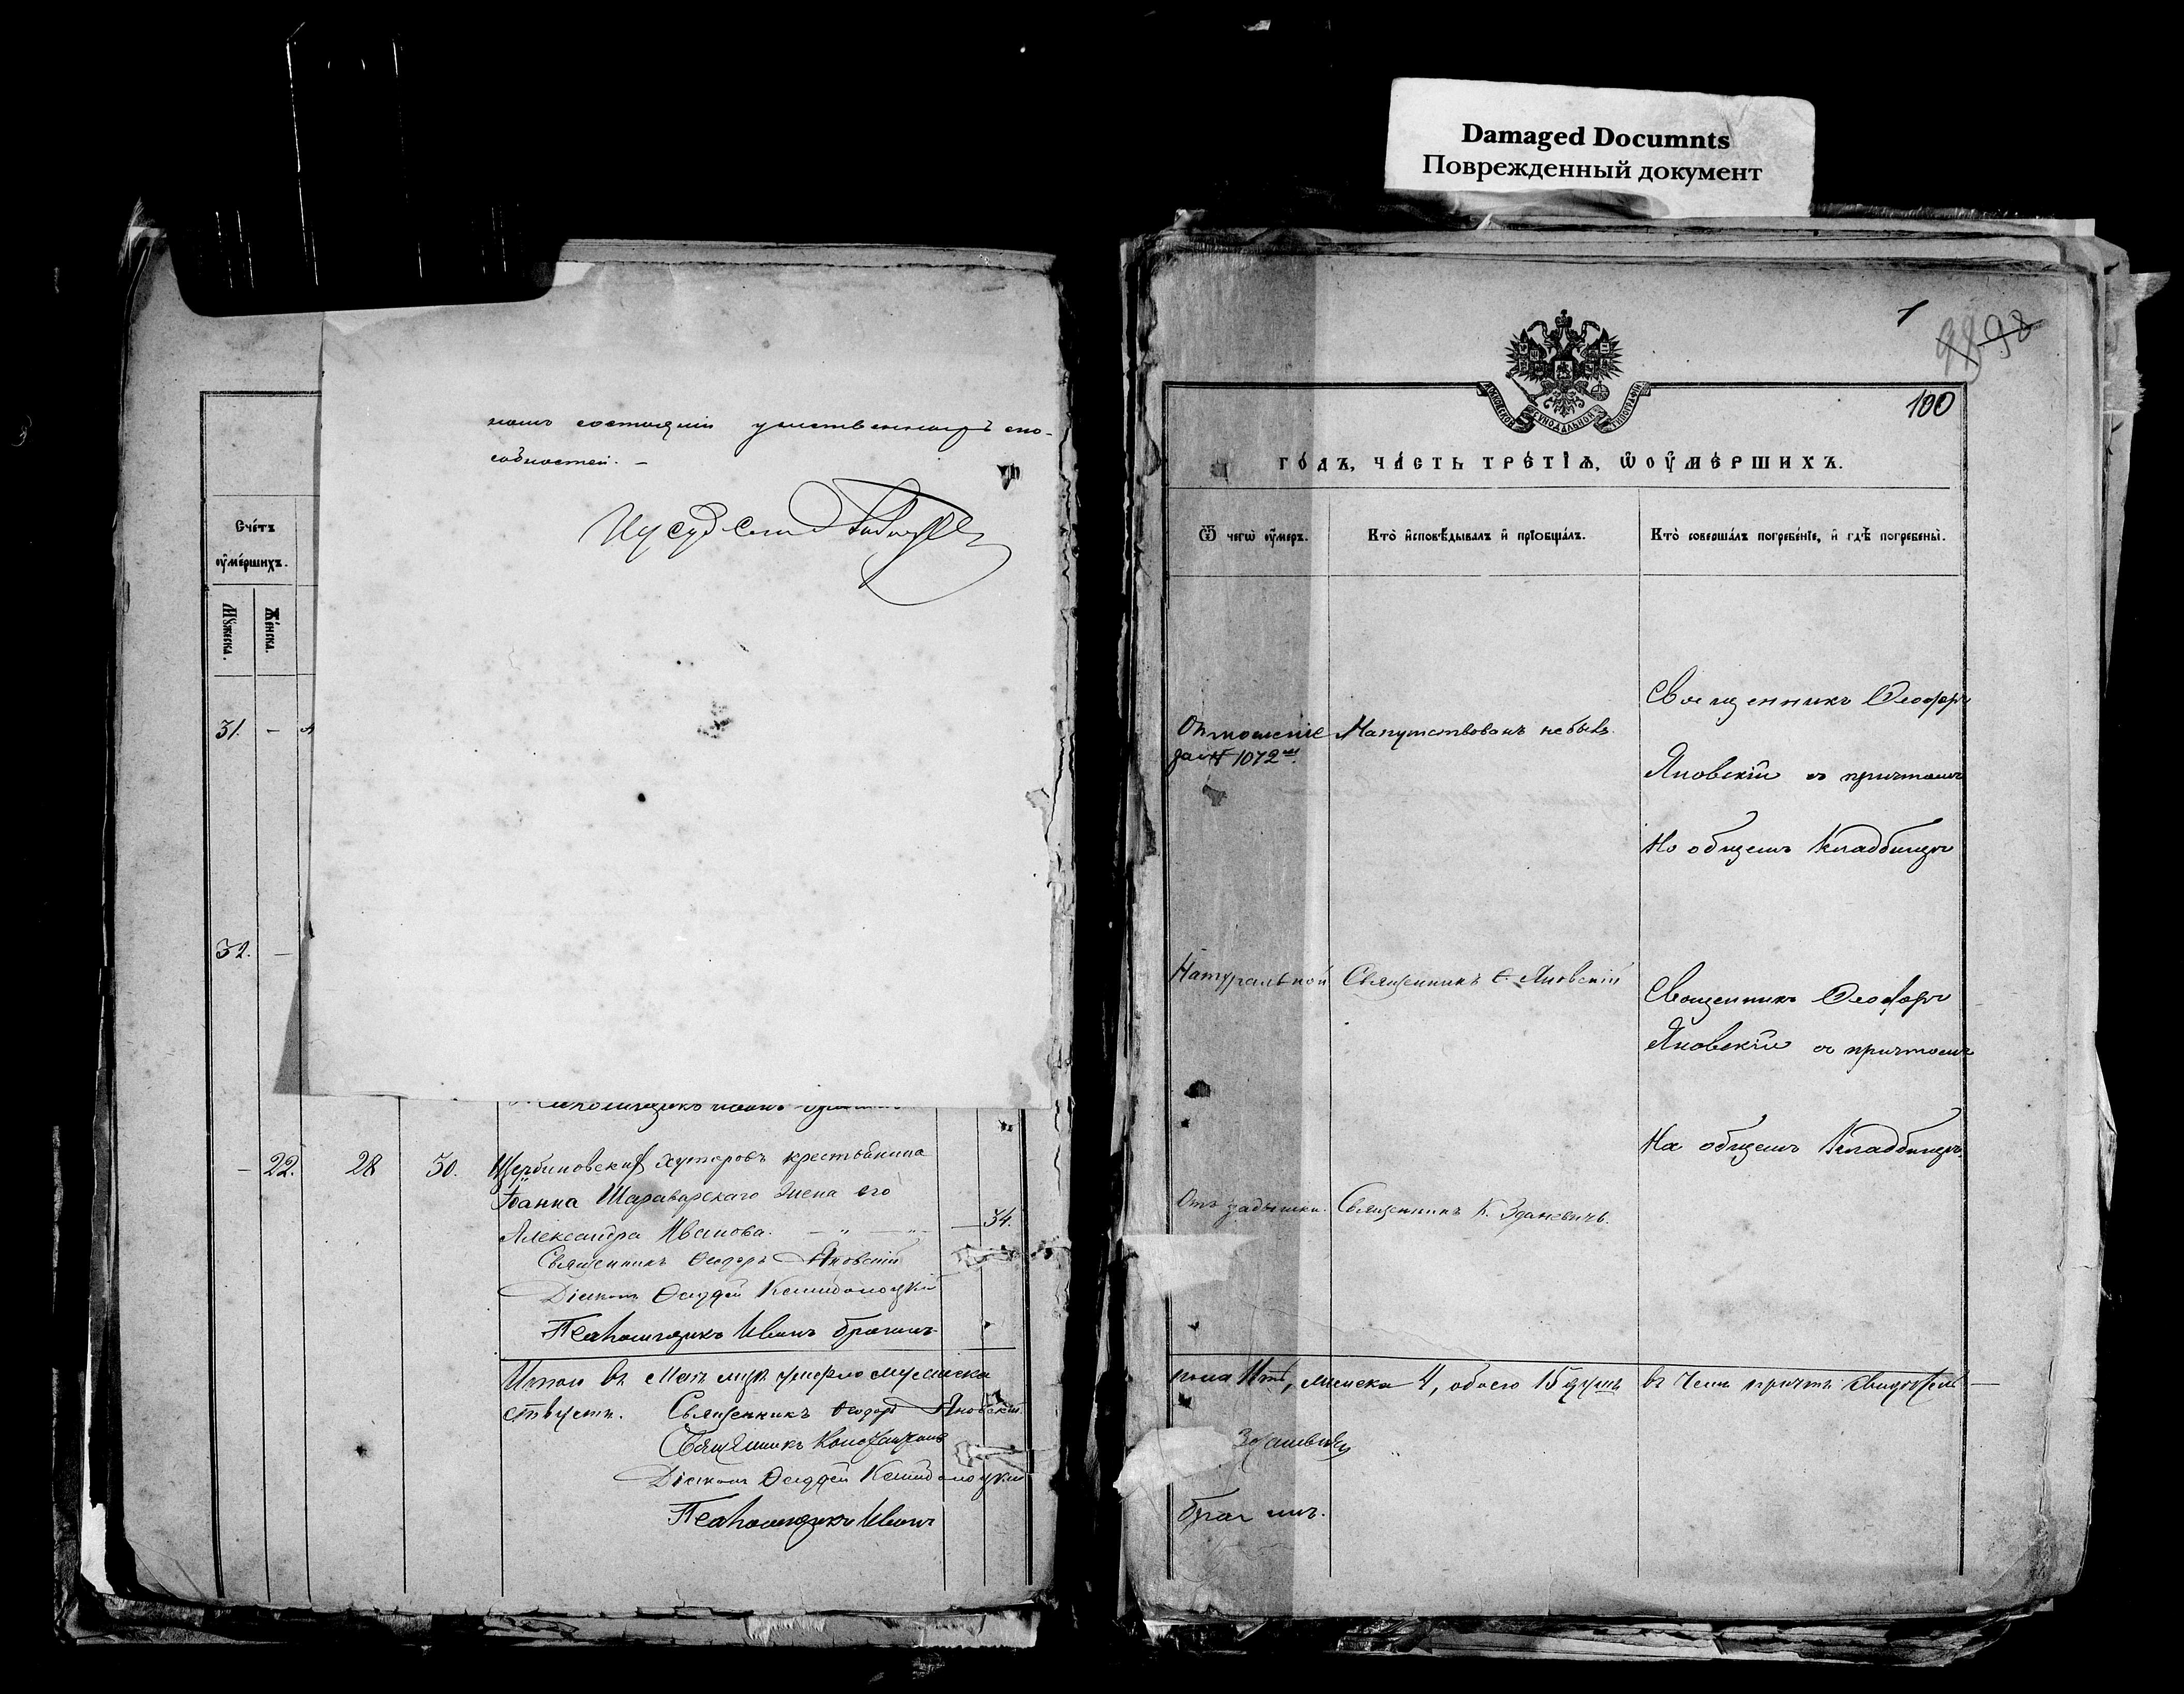 Damaged Documnts
Поврежденный документ
номъ состоянiи умственныхъ спо-
собностей. –
Счéтъ
оумéршихъ.
Мꙋжеска.
Жéнска.
31. –
32. –
– 22. 28 30. Щербиновскихъ хуторовъ крестьянина
Іоанна Шараварскаго жена его
Александра Иванова. 34.
Священникъ Ѳеодоръ Яновскій
Діаконъ
Псаломщикъ Иванъ Брагинъ
Итого въ Маѣ мцѣ умерло мужеска
ствуетъ. Священникъ Ѳеодоръ Яновскій
Священникъ
Діаконъ
Псаломщикъ Иванъ
1
98
100
МОСКОВСКОЙ СУНОДАЛЬНОЙ ТИПОГРАФІИ
гóдъ, чáсть трéтїѧ, ѡ оумéршихъ.
Ѿ чегѡ̀ оумръ.
Ктò исповѣ́дывалъ и прїѡбщáлъ.
Ктò совершáлъ погребéнїе, и гдѣ̀ погребены̀.
Отношеніе
за № 1072
Напутствованъ не былъ.
Священникъ Ѳеодоръ
Яновскій съ причтомъ
На общемъ кладбищѣ
Натуральной
Священникъ Ѳ. Яновскій
Священникъ Ѳеодоръ
Яновскій съ причтомъ
На общемъ кладбищѣ.
Отъ задышки.
Священникъ К. Зданевичъ.
пола 11ть, женска 4, обоего 15 душъ въ чемъ причтъ свидѣтель-
Зданевичъ
Брагинъ.